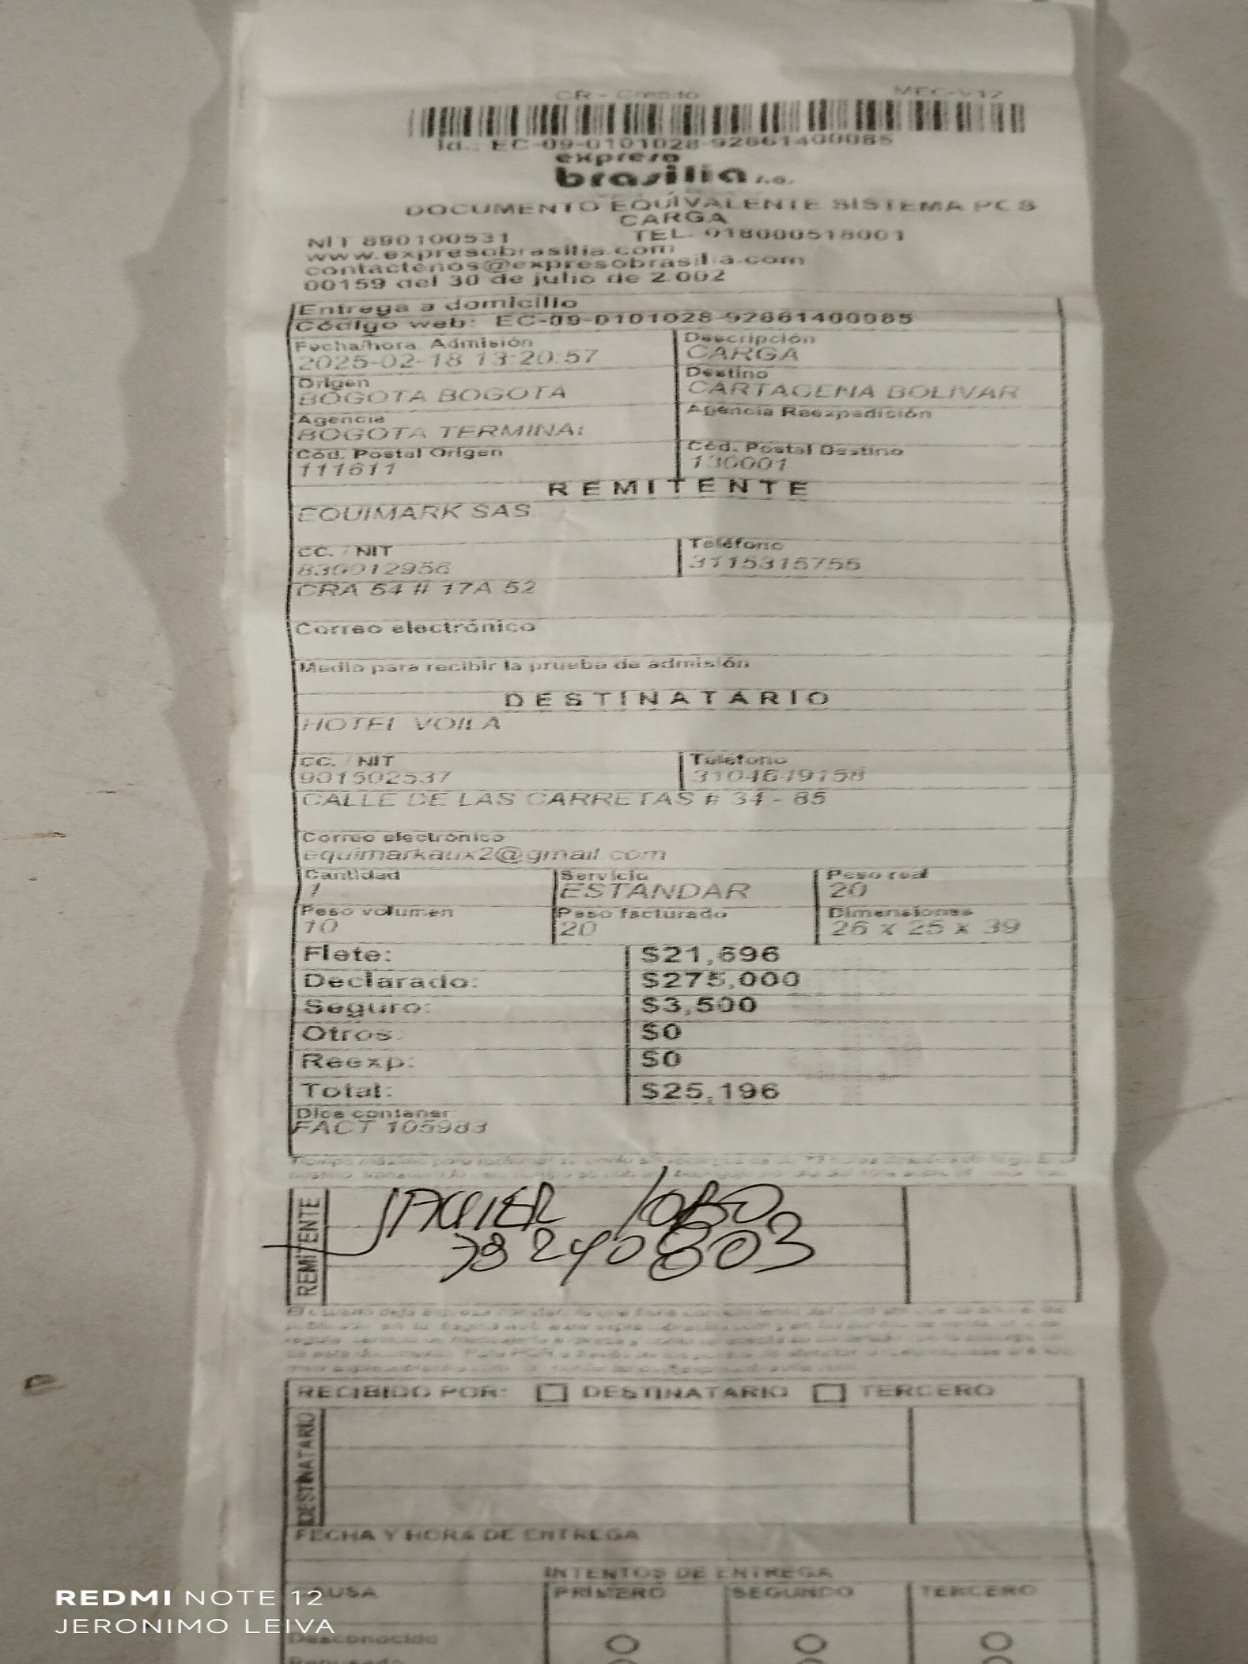 CR - Credito MEC-V12
Id.: EC-09-0101028-92861400085
expreso
brasilia s.a.
DOCUMENTO EQUÍVALENTE SISTEMA PCS
CARGA
NIT 890100531 TEL. 018000518001
www.expresobrasilia.com
contactenos@expresobrasilia.com
00159 del 30 de julio de 2.002
Entrega a domicilio
Código web: EC-09-0101028-92861400085
Fecha/hora Admisión Descripción
2025-02-18 13:20:57 CARGA
Origen Destino
BOGOTA BOGOTA CARTAGENA BOLIVAR
Agencia Agencia Reexpedición
BOGOTA TERMINAL
Cód. Postal Origen Cód. Postal Destino
111611 130001
REMITENTE
EQUIMARK SAS
CC. / NIT Teléfono
830012956 3115315755
CRA 54 # 17A 52
Correo electrónico
Medio para recibir la prueba de admisión
DESTINATARIO
HOTEL VOILA
CC. / NIT Teléfono
901502537 3104649758
CALLE DE LAS CARRETAS # 34 - 85
Correo electrónico
equimarkaux2@gmail.com
Cantidad Servicio Peso real
1 ESTANDAR 20
Peso volumen Peso facturado Dimensiones
10 20 26 x 25 x 39
Flete: $21,696
Declarado: $275,000
Seguro: $3,500
Otros $0
Reexp: $0
Total: $25,196
Dice contener
FACT 105983
REMITENTE
JAVIER LOBO
78240803
RECIBIDO POR: DESTINATARIO TERCERO
DESTINATARIO
FECHA Y HORA DE ENTREGA
INTENTOS DE ENTREGA
CAUSA PRIMERO SEGUNDO TERCERO
Desconocido
Rehusado
REDMI NOTE 12
JERONIMO LEIVA